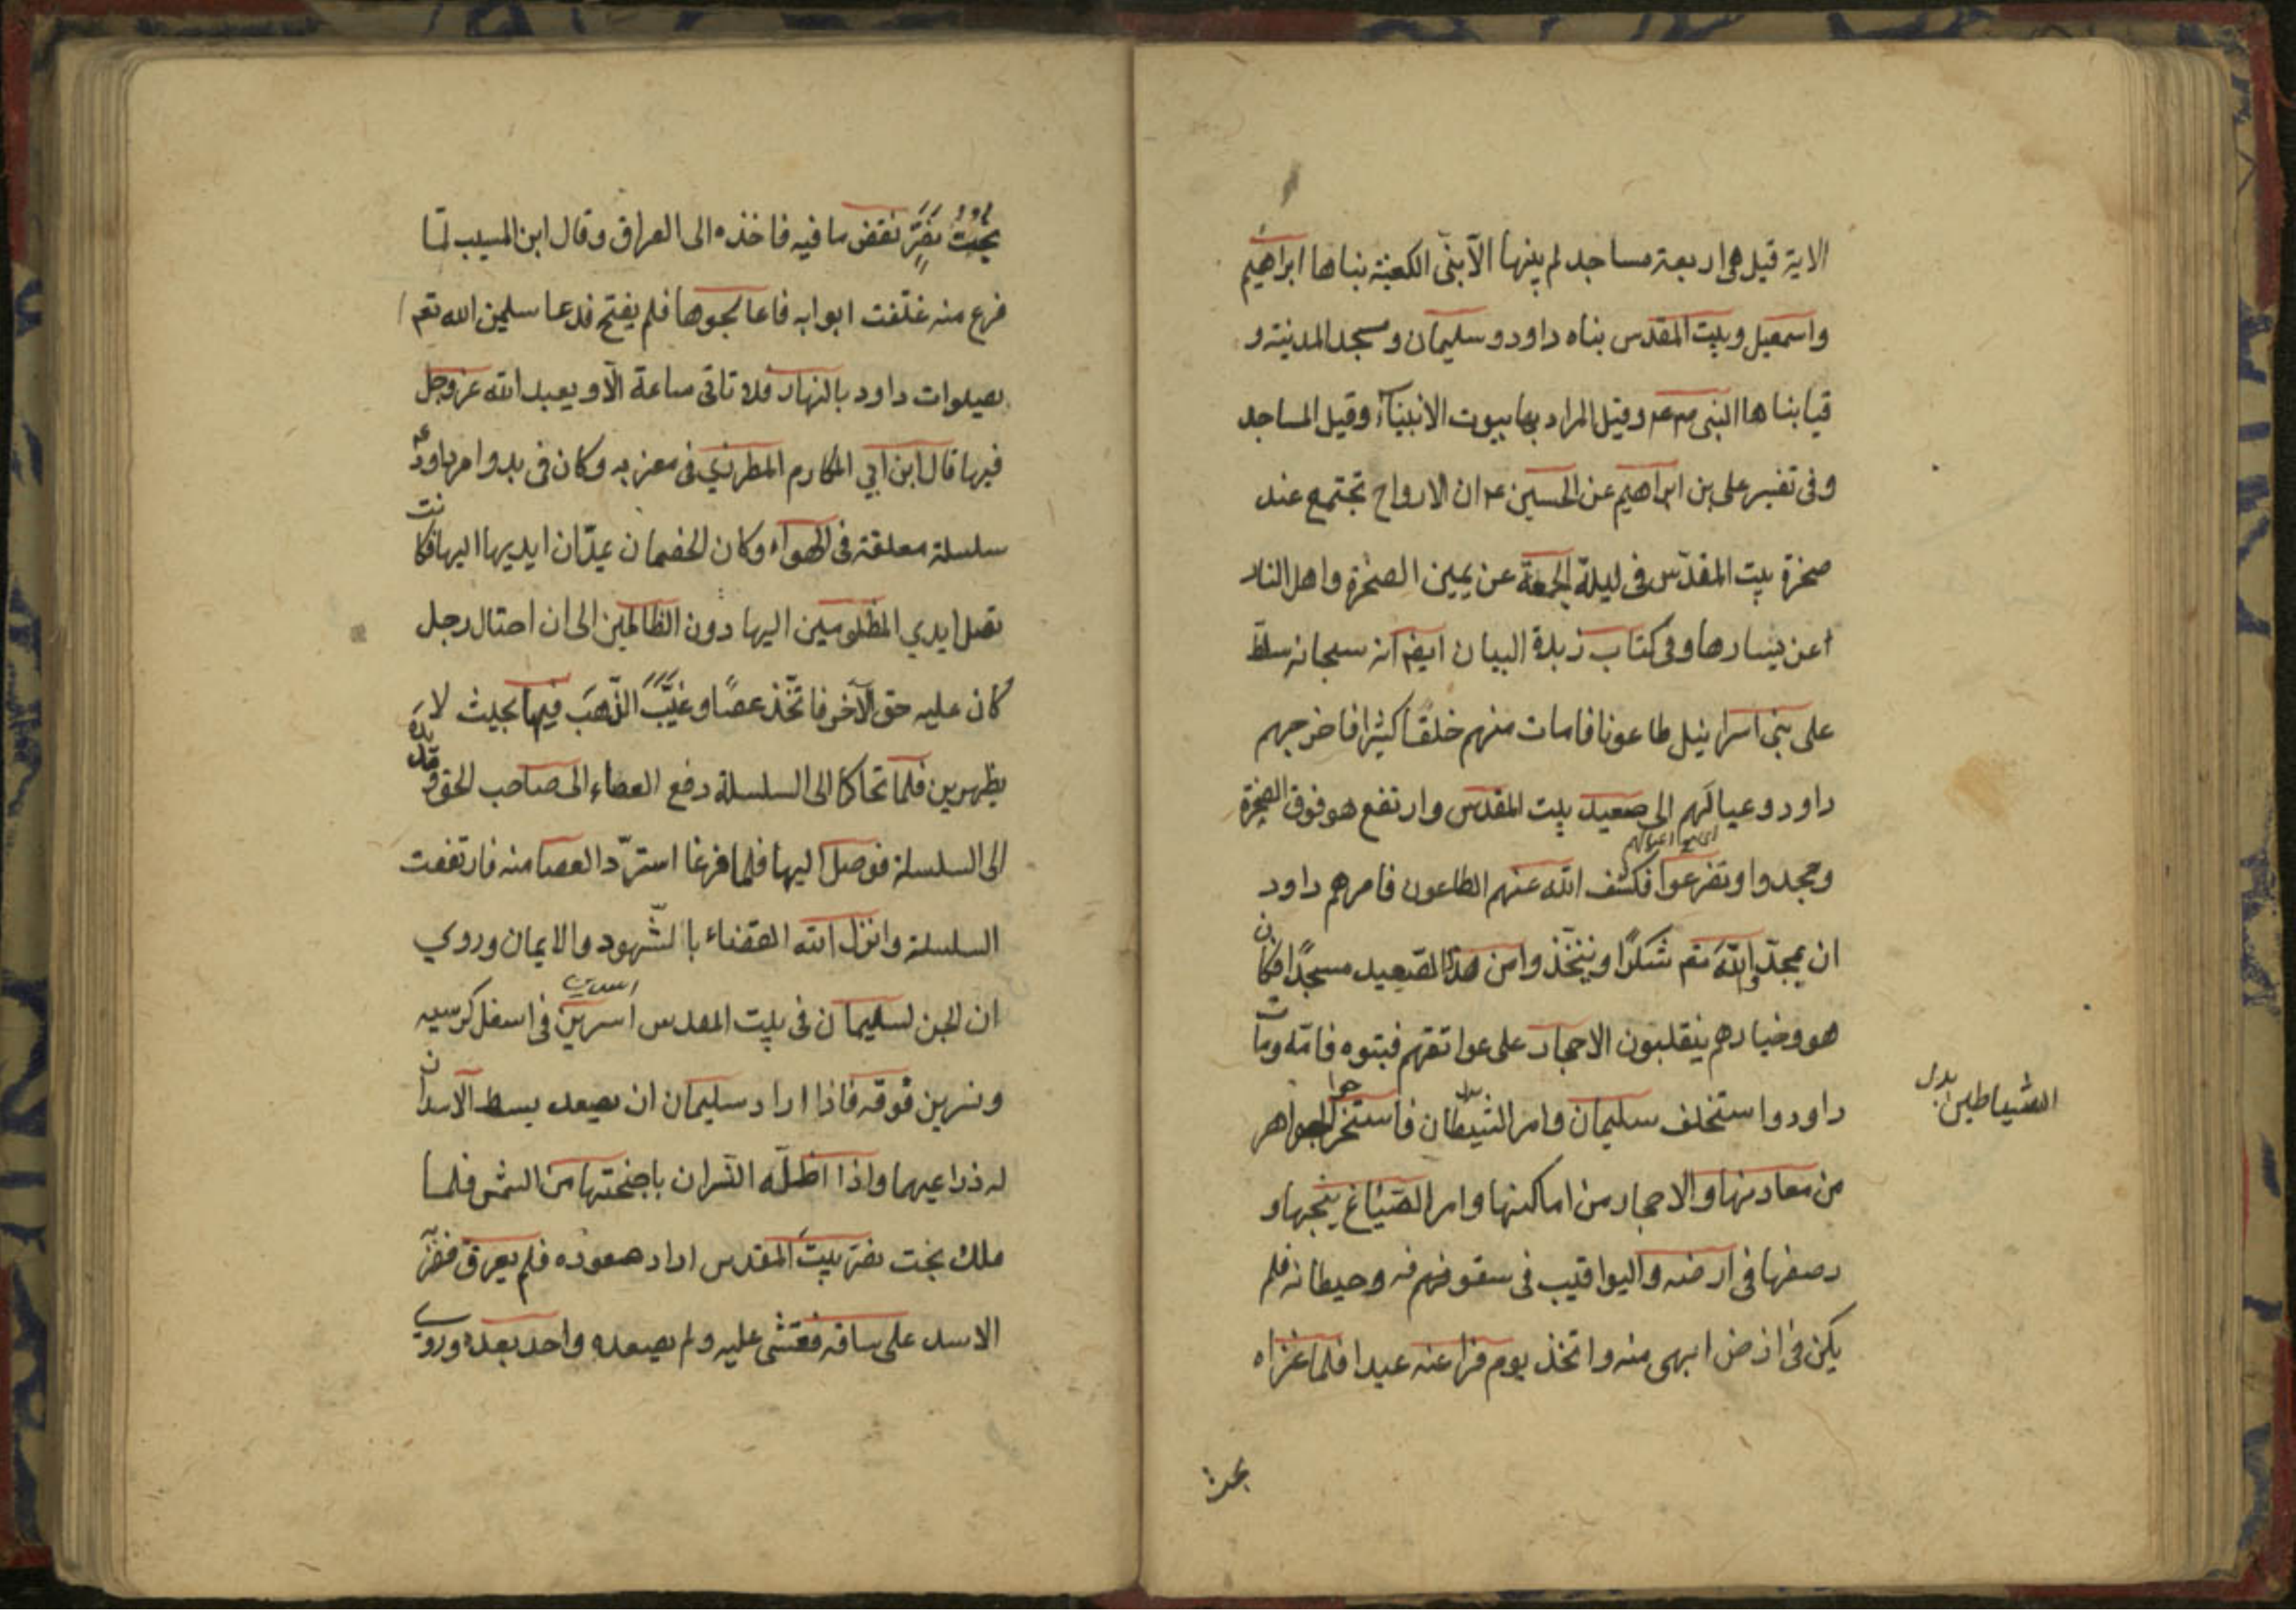 الاية قيل هى اربعة مساجد لم يبنها الّا بنىّ الكعبة بناها ابراهيم
واسمعيل وبيت المقدس بناه داود وسليمان ومسجد المدينة و
قبا بناها النبى وقيل المراد بها بيوت الانبيآء وقيل المساجد
وفى تفسير على بن ابراهيم عن الحسين ع ان الارواح تجتمع عند
صخرة بيت المقدّس فى ليلة الجمعة عن يمين الصخرة واهل النار
عن يسارها وفى كتاب زبدة البيان ايضا انه سبحانه سلّط
على بنى اسرائيل طاعونا فامات منهم خلقًا كثيرا فاخرجهم
داود وعيالهم الى صعيد بيت المقدس وارتفع هو فوق الصخرة
وسجدوا وتضرعوا فكشف الله عنهم الطاعون فامرهم داود
ان يمجدّوا اللّه تعم شكرًا ويتخّذوا من هذا الصّعيد مسجدًا فكان
هو وخيارهم ينقلبون الاحجار على عواتقهم فبنوه قامة ومات
الشياطين بدل
داود واستخلف سليمان وامر الشيطان فاستخرجوا الجواهر
من معادنها والاحجار من اماكنها وامر الصّياغ بنجبها و
رصفها فى ارضه واليواقيب فى سقوفهم فه وحيطانه فلم
يكن فى ارض ابهى منه واتخذ يوم فراغه عيدا فلما غزاه
بخت
بخت نصّر نقض ما فيه فاخذه الى العراق وقال ابن المسيب لمّا
فرع منه غلّقت ابوابه فاعالجوها فلم يفتح فدعا سليمن الله تعم
بصيلوات داود بالنهار فلا تاتى ساعة الّا ويعبد الله عزوجل
فيها قال ابن ابي المكارم المطرزي فى معزبه وكان فى بدو امر داود ع
سلسلة معلقة فى الهواء وكان الخصمان يمدّان ايديها اليها فكانت
تصل ايدي المظلومين اليها دون الظالمين الى ان احتال رجل
كان عليه حق الآخر فاتخّذ عصًا وغيّب الذّهب فيها بحيث لا
يظهرين فلما تحاكا الى السلسلة دفع العصاء الى صاحب الحق ومد يده
الى السلسلة فوصل اليها فلما فرغا استردّ العصا منه فارتفعت
السلسلة وانزل الله القضاء بالشّهود والايمان وروي
ان الجن لسليمان فى بيت المقدس اسرين فى اسفل كرسيه
ونسرين فوقه فاذا اراد سليمان ان يصعد بسط الاسدان
له ذراعيهما واذا اظلّه النّسران باجنحتها من الشمس فلما
ملك بخت نصّر بيت المقدس اراد صعوده فلم يعرق فضرّ
الاسد على ساقه فغشى عليه ولم يصعده واحد بعده وروى